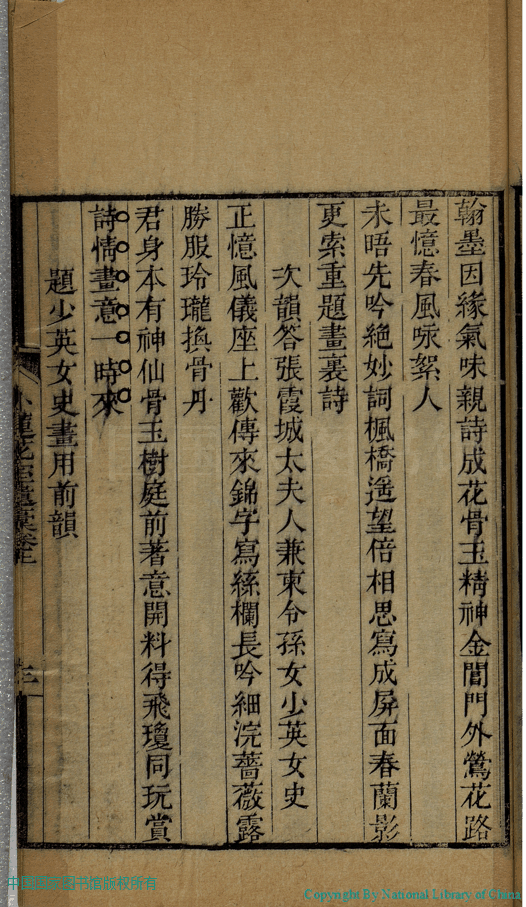 翰墨因緣氣味親詩成花骨玉精神金閶門外鶯花路
最憶春風咏絮人
未晤先吟絶妙詞楓橋遥望倍相思寫成屏面春蘭影
更索重題畫裏詩
次韻答張霞城太夫人兼柬令孫女少英女史
正憶風儀座上歡傳來錦字寫絲欄長吟細浣薔薇露
勝服玲瓏換骨丹
君身本有神仙骨玉樹庭前著意開料得飛瓊同玩賞
詩情畫意一時來
題少英女史畫用前韻
中国国家图书馆版权所有
Copyright By National Library of China